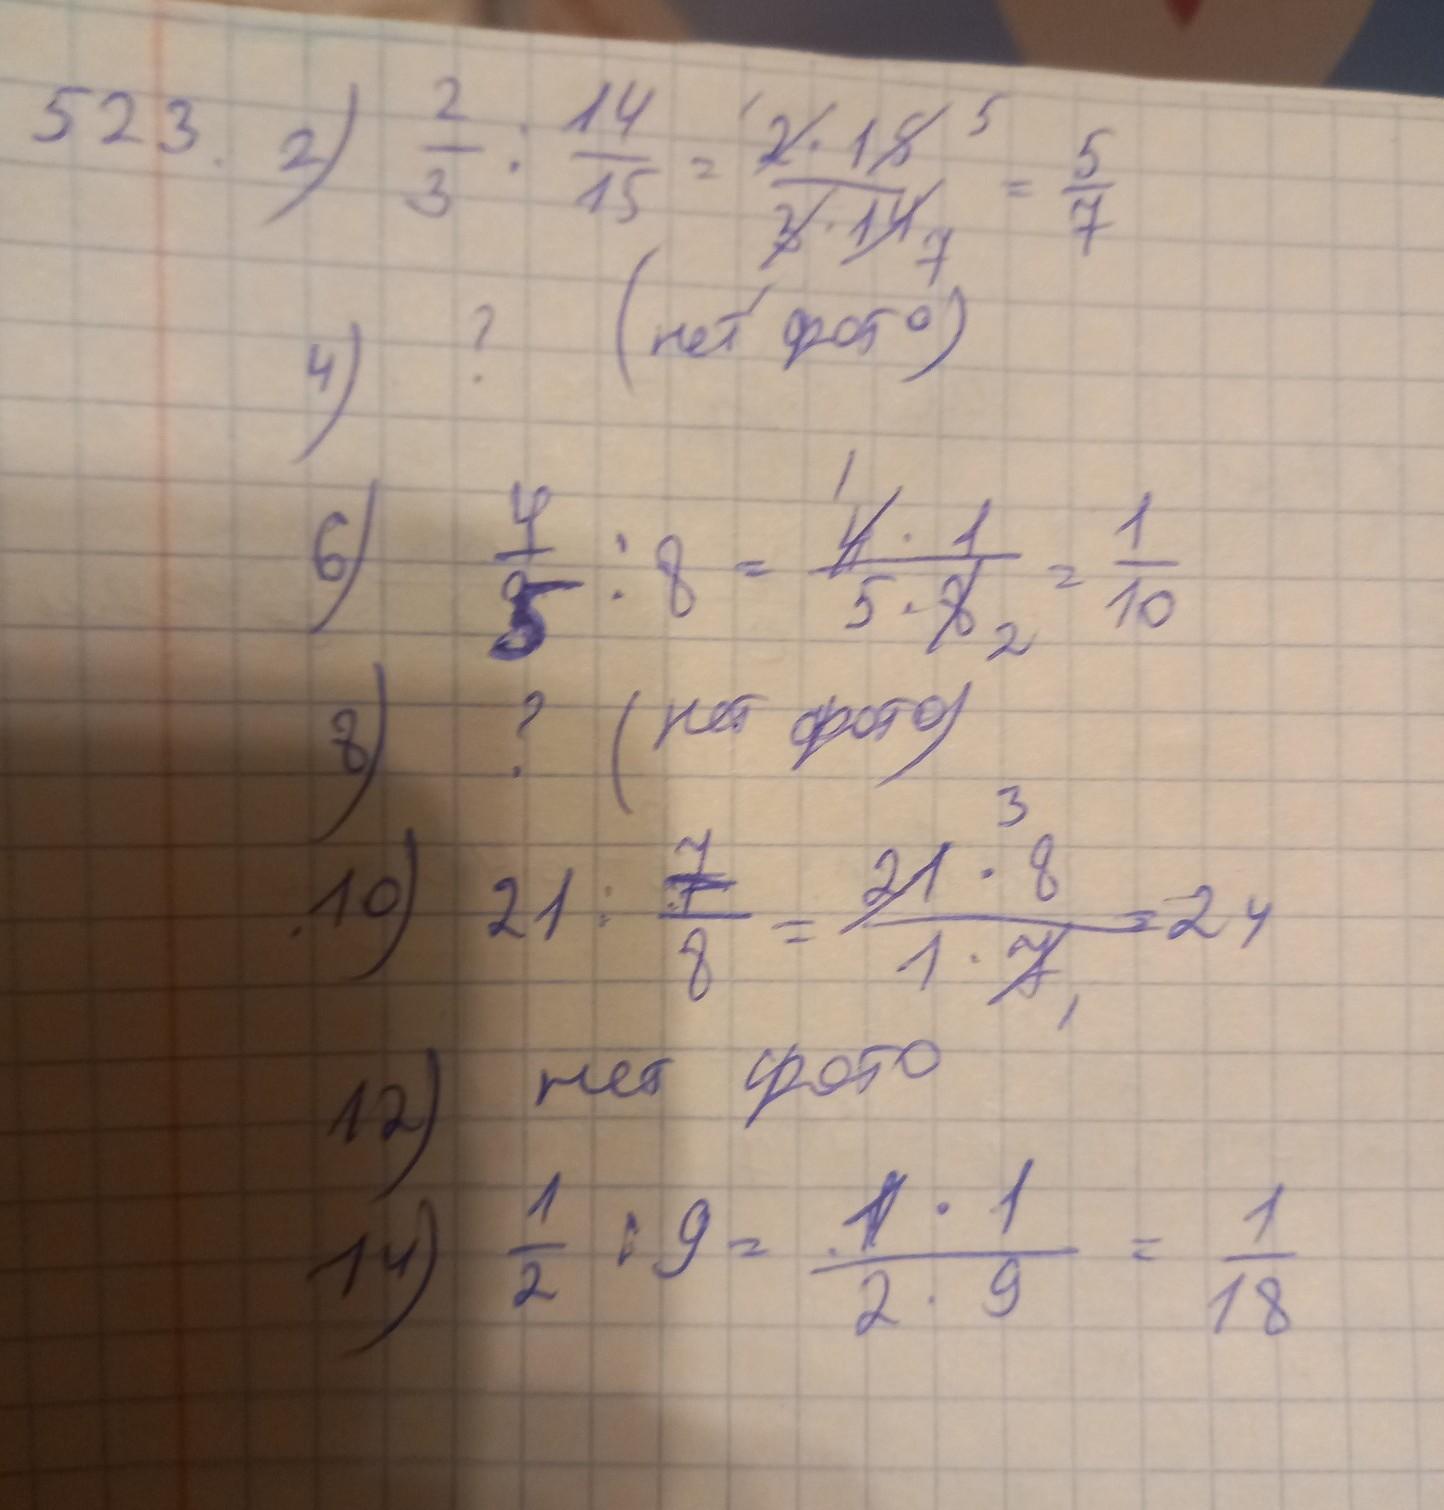 523. 2) 2/3 : 14/15 = 2·15/3·14 1 5 1 7 = 5/7
4) ? (нет фото)
6) 4/5 : 8 = 4·1/5·8 1 2 = 1/10
8) ? (нет фото)
10) 21 : 7/8 = 21·8/1·7 3 1 = 24
12) нет фото
14) 1/2 : 9 = 1·1/2·9 = 1/18